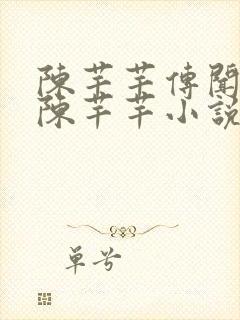 陳芊芊傳聞
陳芊芊小說
單兮